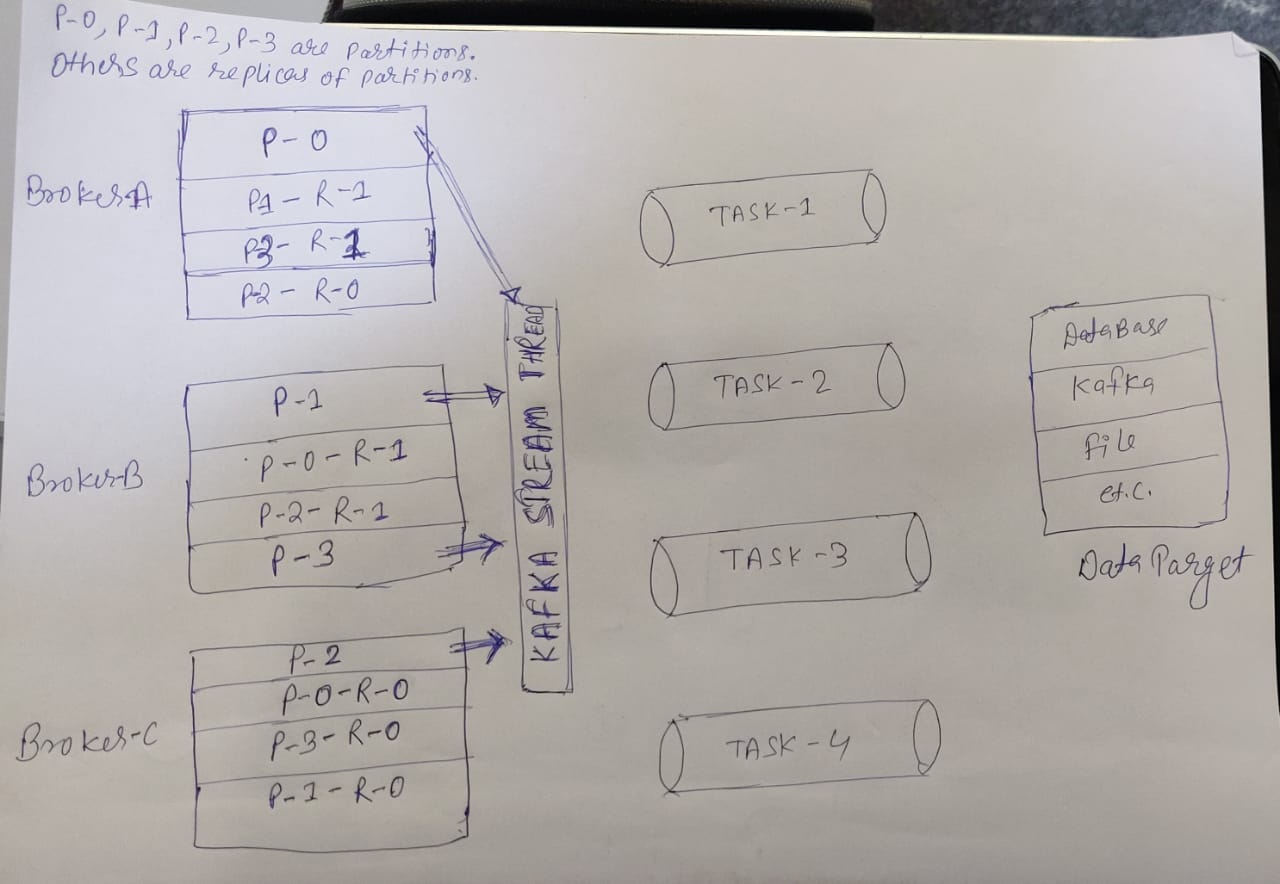 P-0, P-1, P-2, P-3 are partitions.
Others are replicas of partitions.
Broker-A
P-0
P1-R-1
P3-R-1
P2-R-0
Broker-B
P-1
P-0-R-1
P-2-R-1
P-3
Broker-C
P-2
P-0-R-0
P-3-R-0
P-1-R-0
KAFKA STREAM THREAD
TASK-1
TASK-2
TASK-3
TASK-4
DataBase
Kafka
File
et.c.
Data Target